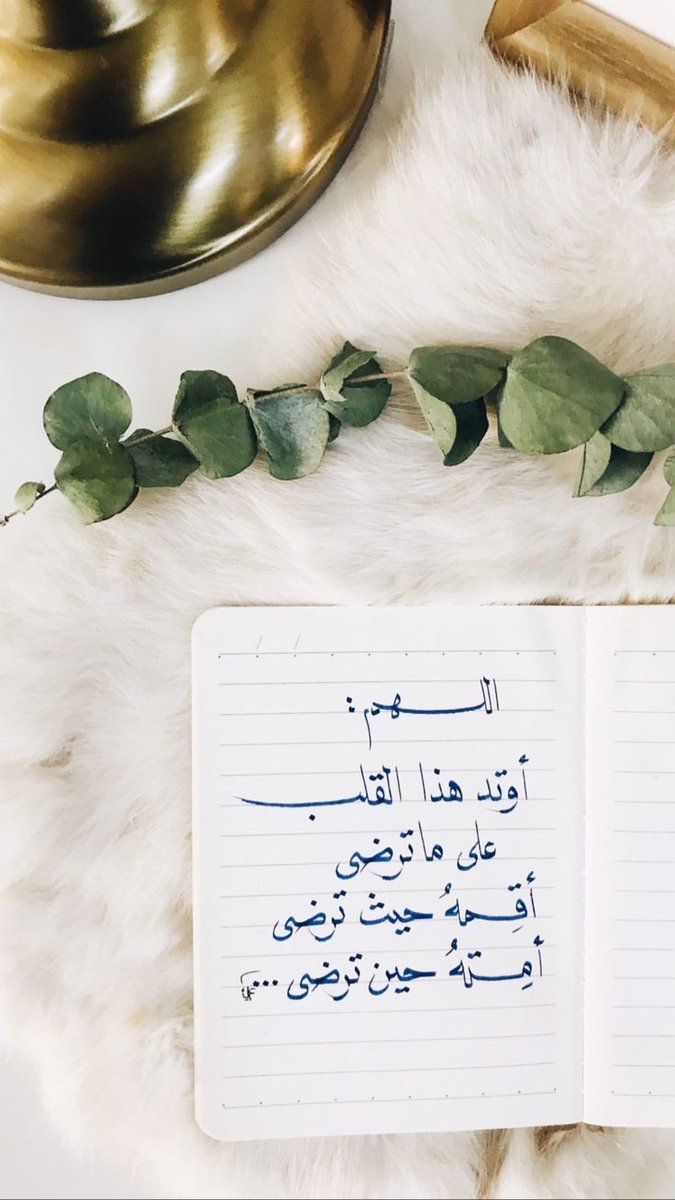 اللهم :
أوتد هذا القلب
على ما ترضى
أقِمهُ حيث ترضى
أمِتهُ حين ترضى ...